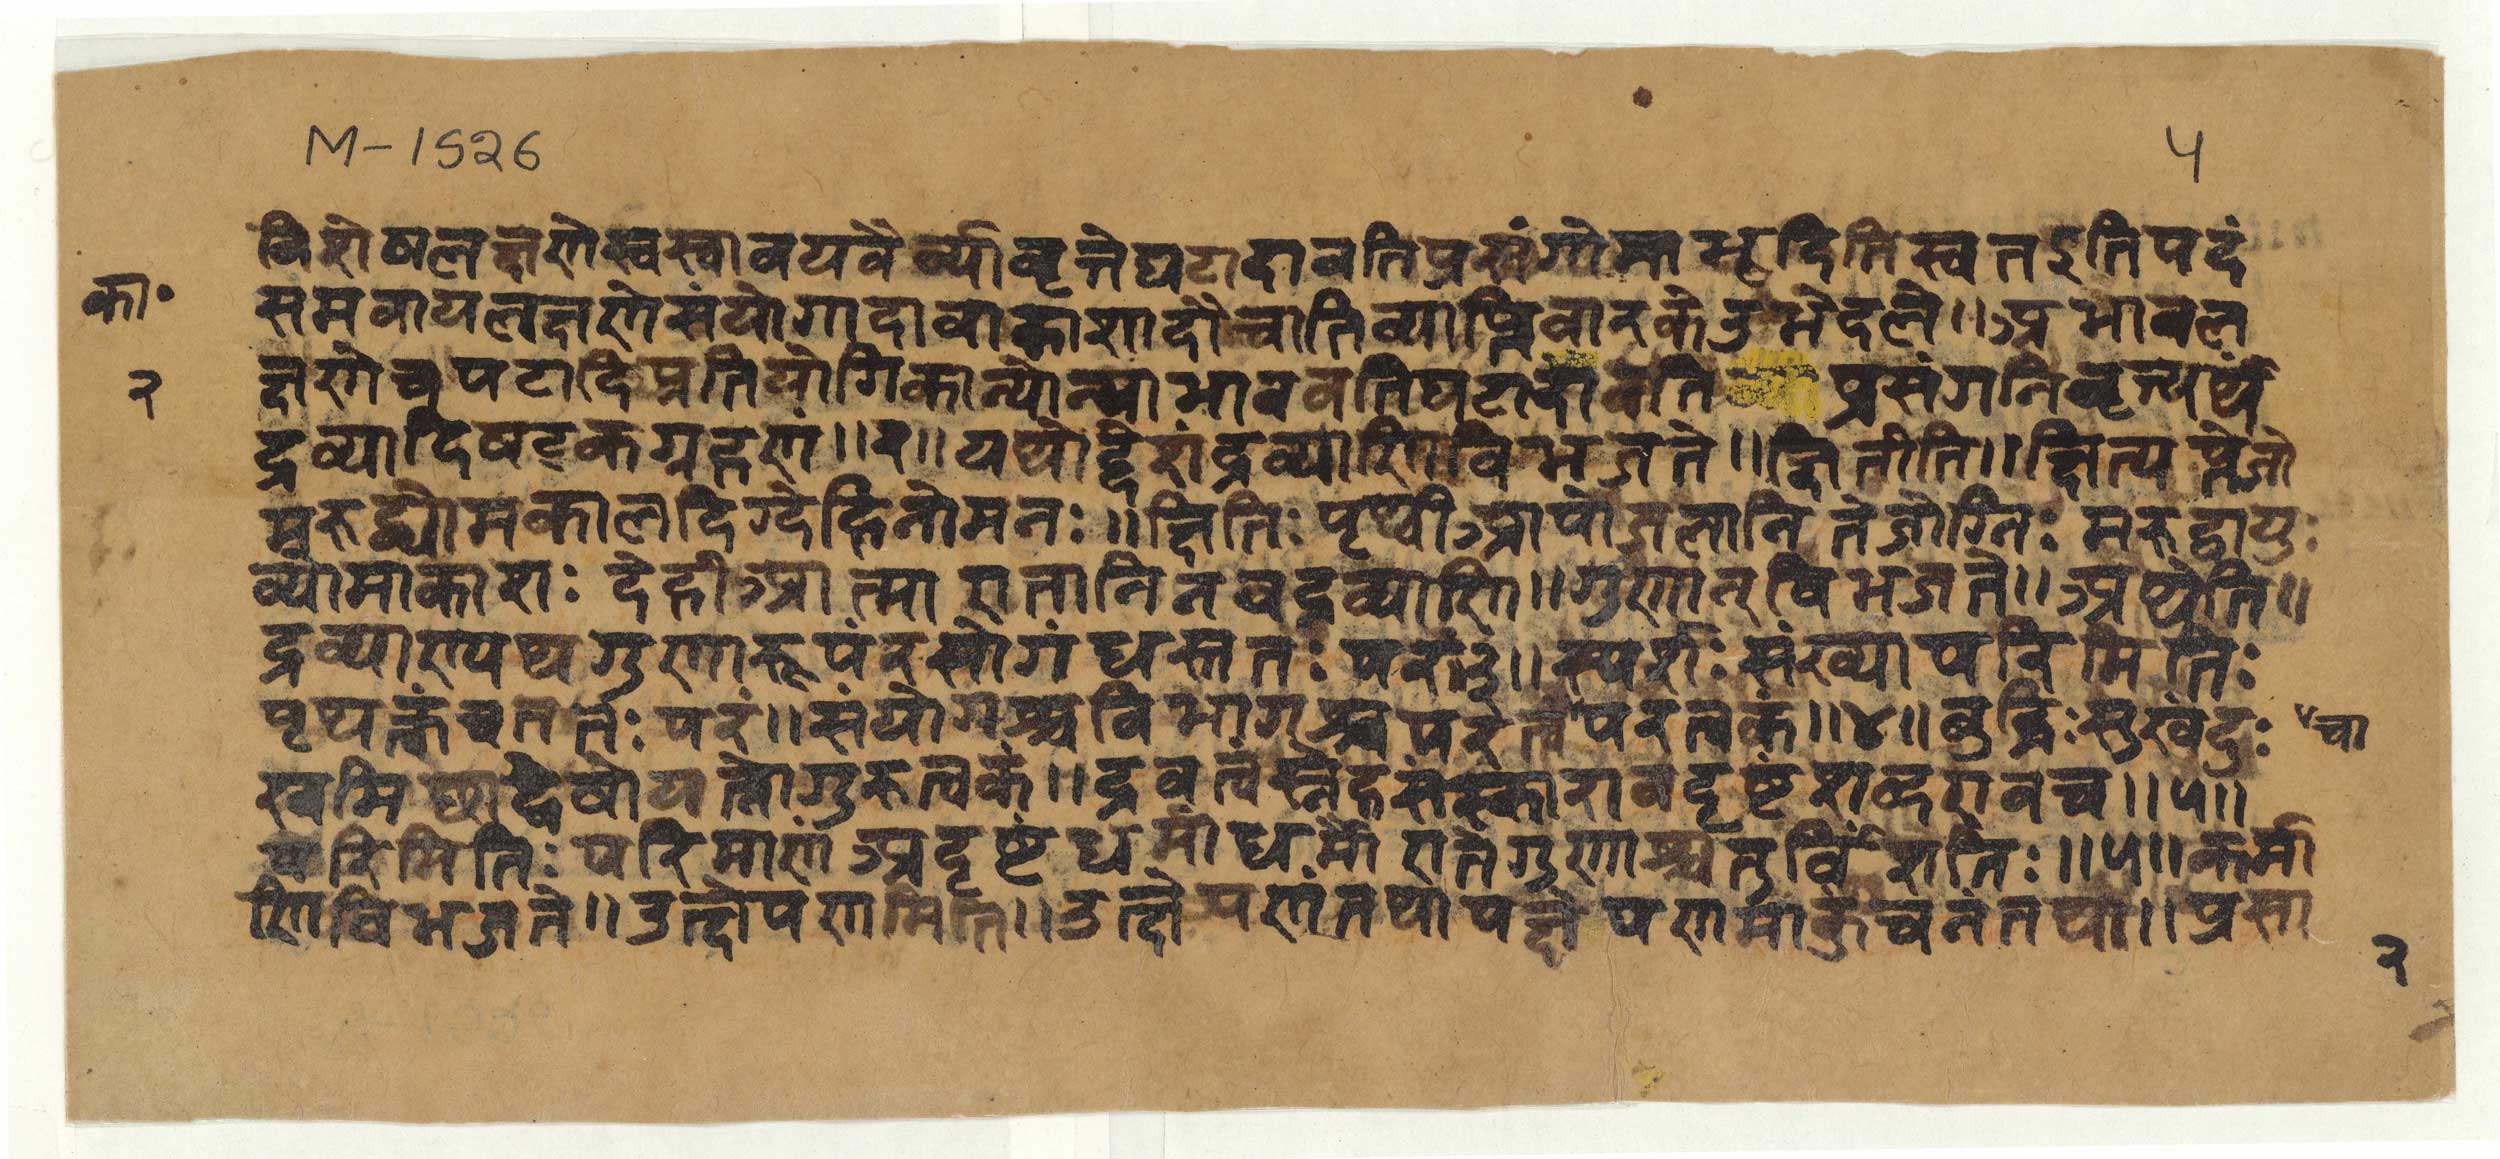 M-1526
५
विशेषलक्षणेस्वस्वावयवैर्व्यावृत्तेघटादावतिप्रसंगोमाभूदितिस्वतइतिपदं
का॰
समवायलक्षणेसंयोगादावाकाशादौचातिव्याप्तिवारकेउभेदले॥अभावल
२
क्षणेचपटादिप्रतियोगिकान्योन्याभाववतिघटादावति प्रसंगनिवृत्त्यर्थं
द्रव्यादिषट्कग्रहणं॥२॥यथोद्देशंद्रव्याणिविभजते॥क्षितीति॥क्षित्यप्तेजो
मरुद्व्योमकालदिग्देहिनोमनः॥क्षितिःपृथ्वीआपोजलानितेजोग्निःमरुद्वायुः
व्योमाकाशःदेहीआत्माएतानिनवद्रव्याणि॥गुणान्विभजते॥अथेति॥
द्रव्याण्यथगुणारूपंरसोगंधस्ततःपरं३॥स्पर्शःसंख्यापरिमितिः
पृथक्त्वंचततःपरं॥संयोगश्चविभागश्चपरत्वंपरत्वकं॥४॥बुद्धिःसुखंदुः
"चा
खमिच्छाद्वेषोयत्नोगुरुत्वकं॥द्रवत्वंस्नेहसंस्कारावदृष्टंशब्दएवच॥५॥
परिमितिःपरिमाणंअदृष्टंधर्माधर्मौएतेगुणाश्चतुर्विंशतिः॥५॥कर्मा
णिविभजते॥उत्क्षेपणमिति॥उत्क्षेपणंतथापक्षेपणमाकुंचनंतथा॥प्रसा
२